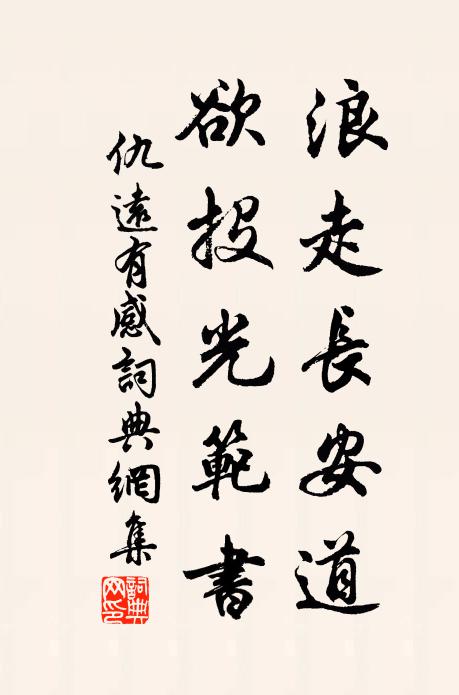 浪走長安道
欲投光範書
仇遠有感詞典網集
詞典網印